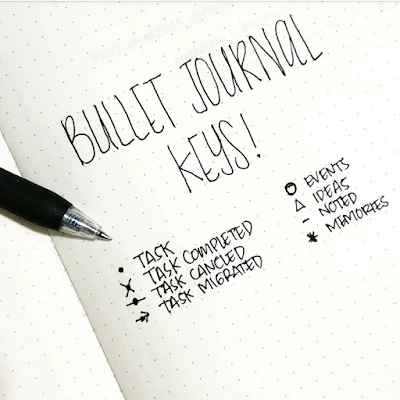 BULLET JOURNAL
KEYS!
• TASK
× TASK COMPLETED
•  TASK CANCLED
→ TASK MIGRATED
O EVENTS
△ IDEAS
– NOTED
* MEMORIES